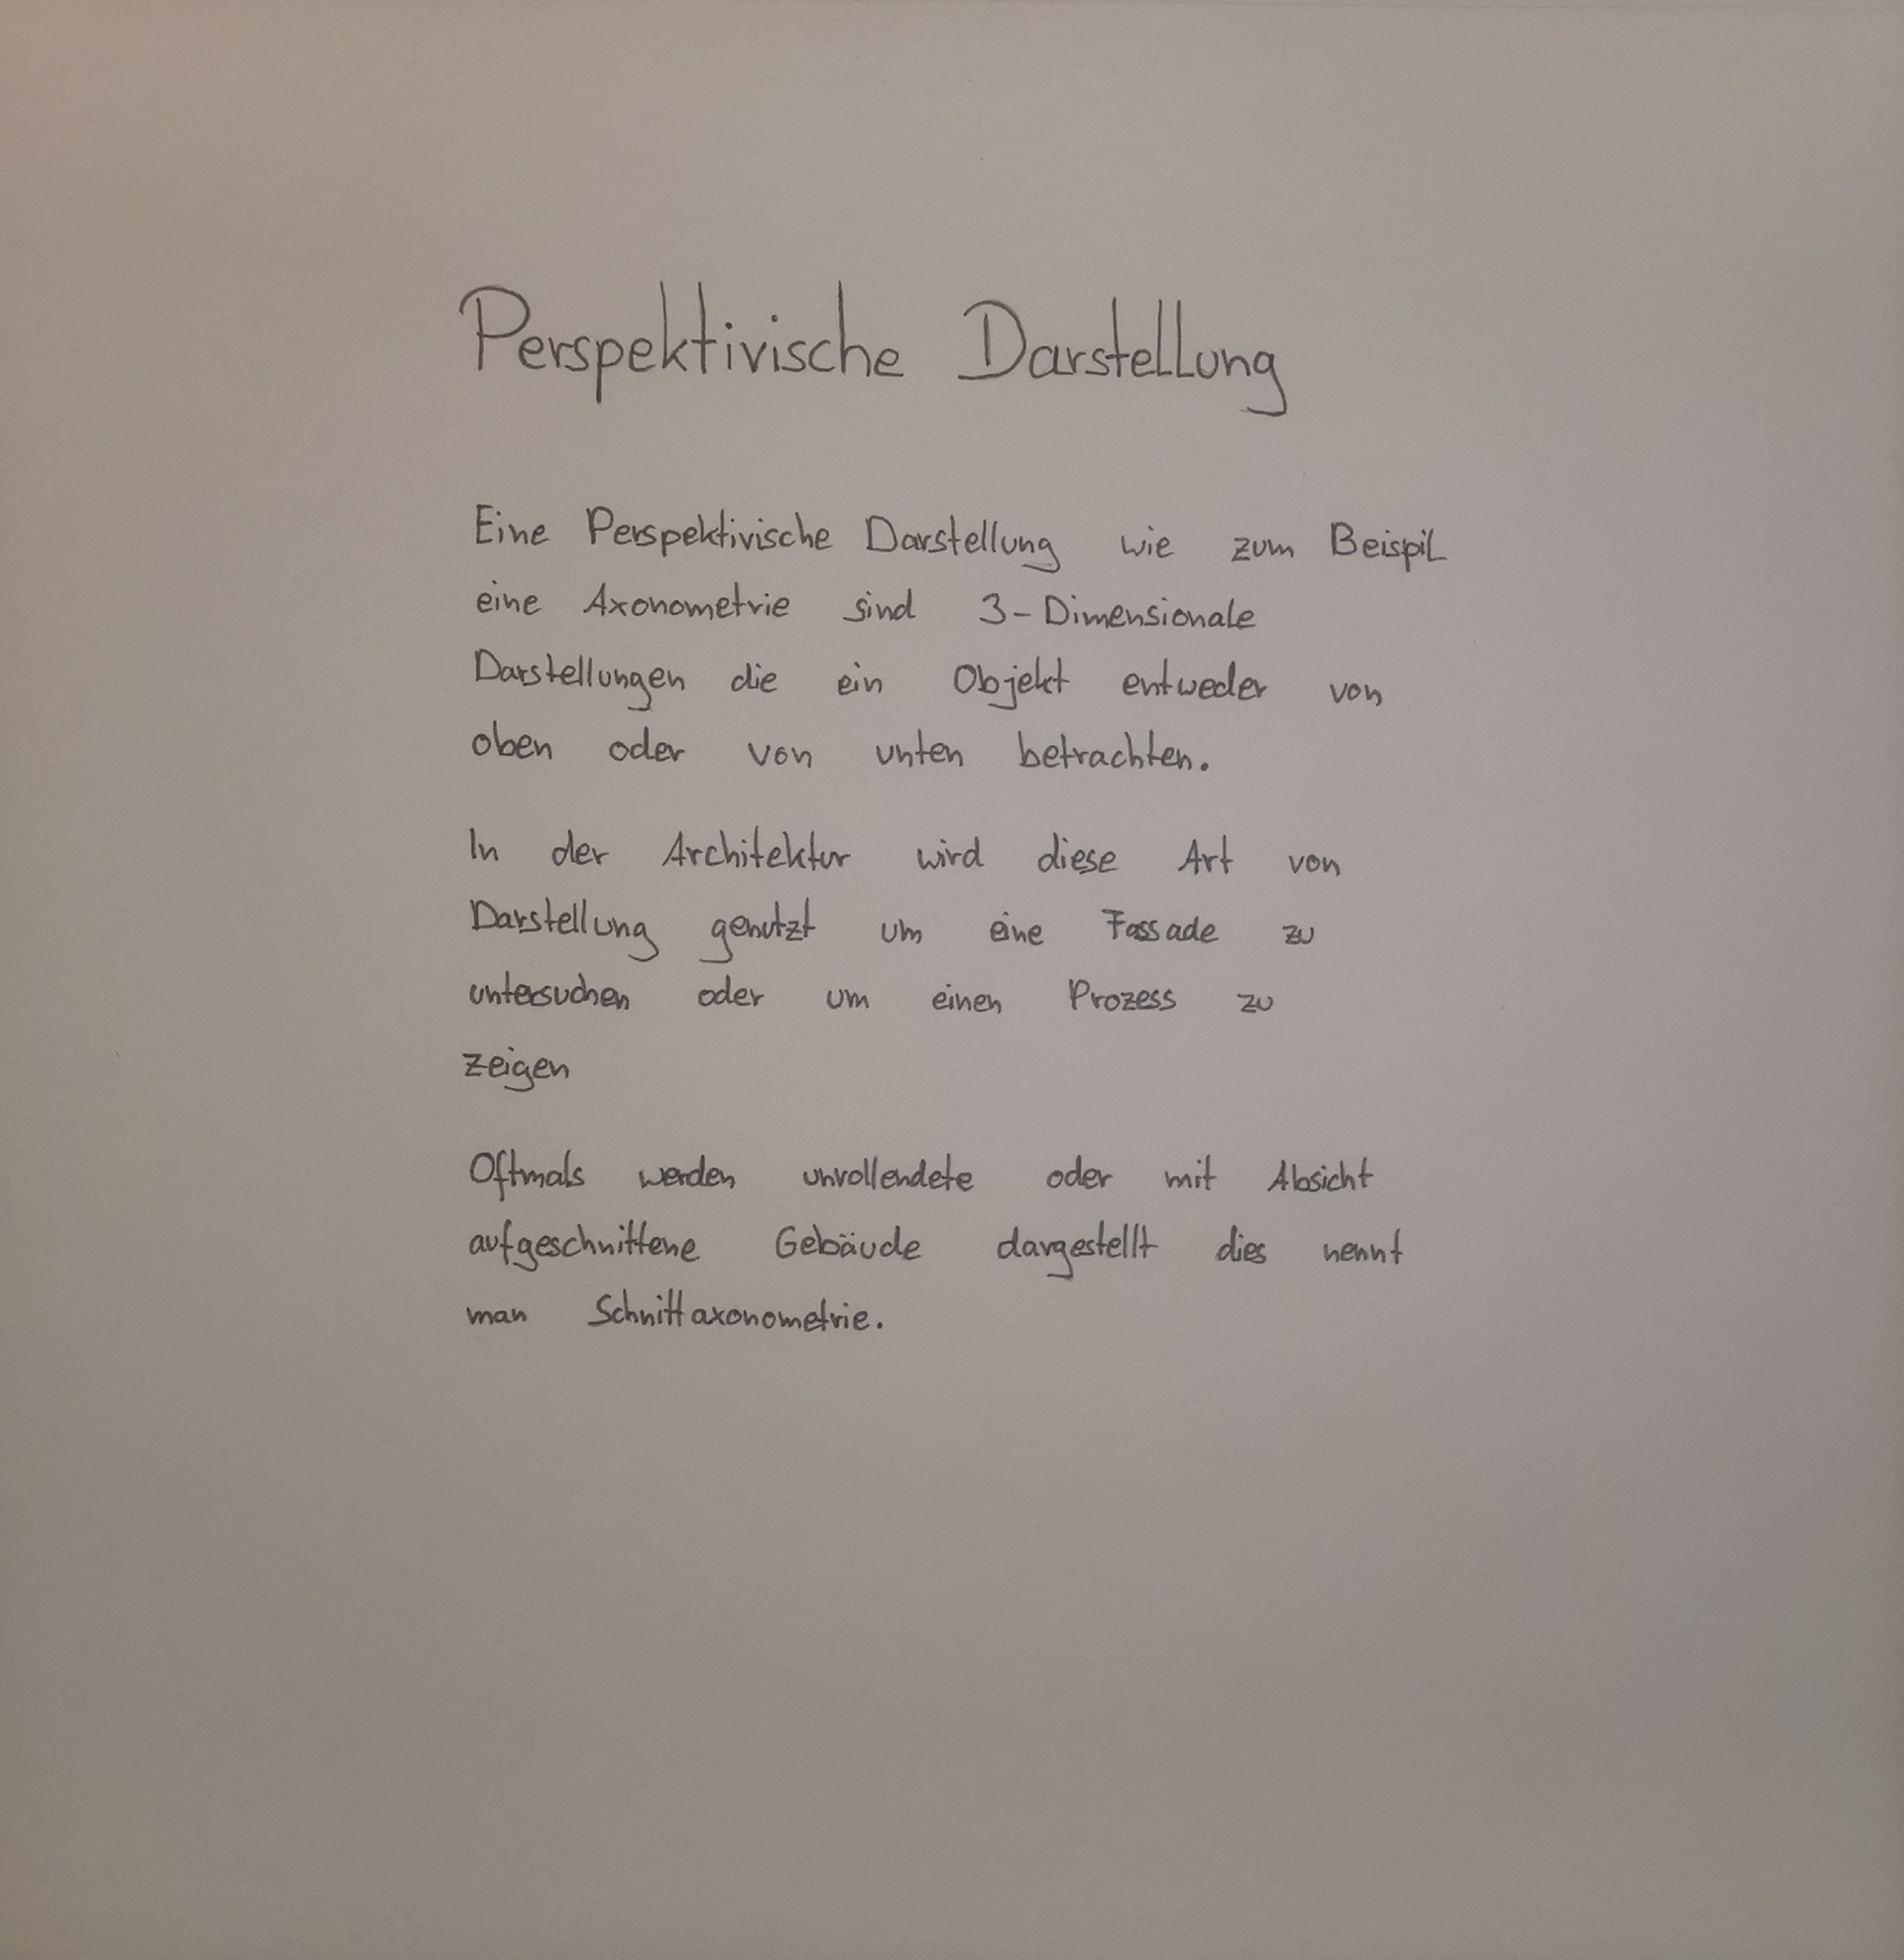 Perspektivische Darstellung
Eine Perspektivische Darstellung wie zum Beispil
eine Axonometrie sind 3-Dimensionale
Darstellungen die ein Objekt entweder von
oben oder von unten betrachten.
In der Architektur wird diese Art von
Darstellung genutzt um eine Fassade zu
untersuchen oder um einen Prozess zu
zeigen
Oftmals werden unvollendete oder mit Absicht
aufgeschnittene Gebäude dargestellt dies nennt
man Schnittaxonometrie.